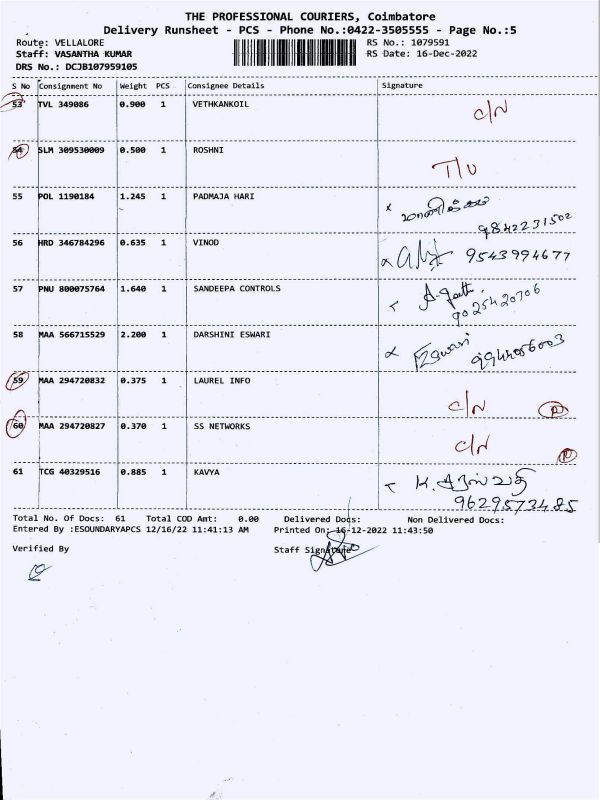 THE PROFESSIONAL COURIERS, Coimbatore
Delivery Runsheet - PCS - Phone No.:0422-3505555 - Page No.:5
Route: VELLALORE RS No.: 1079591
Staff: VASANTHA KUMAR RS Date: 16-Dec-2022
DRS No.: DCJB107959105
S No Consignment No Weight PCS Consignee Details Signature
53 TVL 349086 0.900 1 VETHKANKOIL C/N
54 SLM 309530009 0.500 1 ROSHNI
55 POL 1190184 1.245 1 PADMAJA HARI
9842231502
56 HRD 346784296 0.635 1 VINOD 9543994677
57 PNU 800075764 1.640 1 SANDEEPA CONTROLS
9025420706
58 MAA 566715529 2.200 1 DARSHINI ESWARI Eswari
59 MAA 294720832 0.375 1 LAUREL INFO C/N
60 MAA 294720827 0.370 1 SS NETWORKS C/N
61 TCG 40329516 0.885 1 KAVYA
9629573485
Total No. Of Docs: 61 Total COD Amt: 0.00 Delivered Docs: Non Delivered Docs:
Entered By :ESOUNDARYAPCS 12/16/22 11:41:13 AM Printed On: 16-12-2022 11:43:50
Verified By Staff Signature